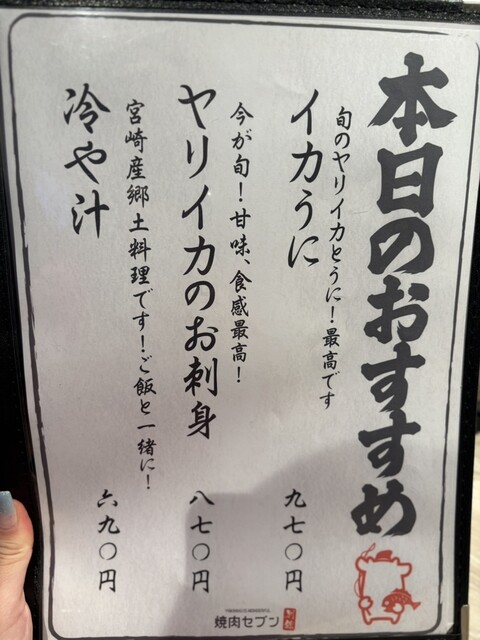 本日のおすすめ
旬のヤリイカとうに！最高です
イカうに
九七〇円
今が旬！甘味、食感最高！
ヤリイカのお刺身
八七〇円
宮崎産郷土料理です！ご飯と一緒に！
冷や汁
六九〇円
焼肉セブン